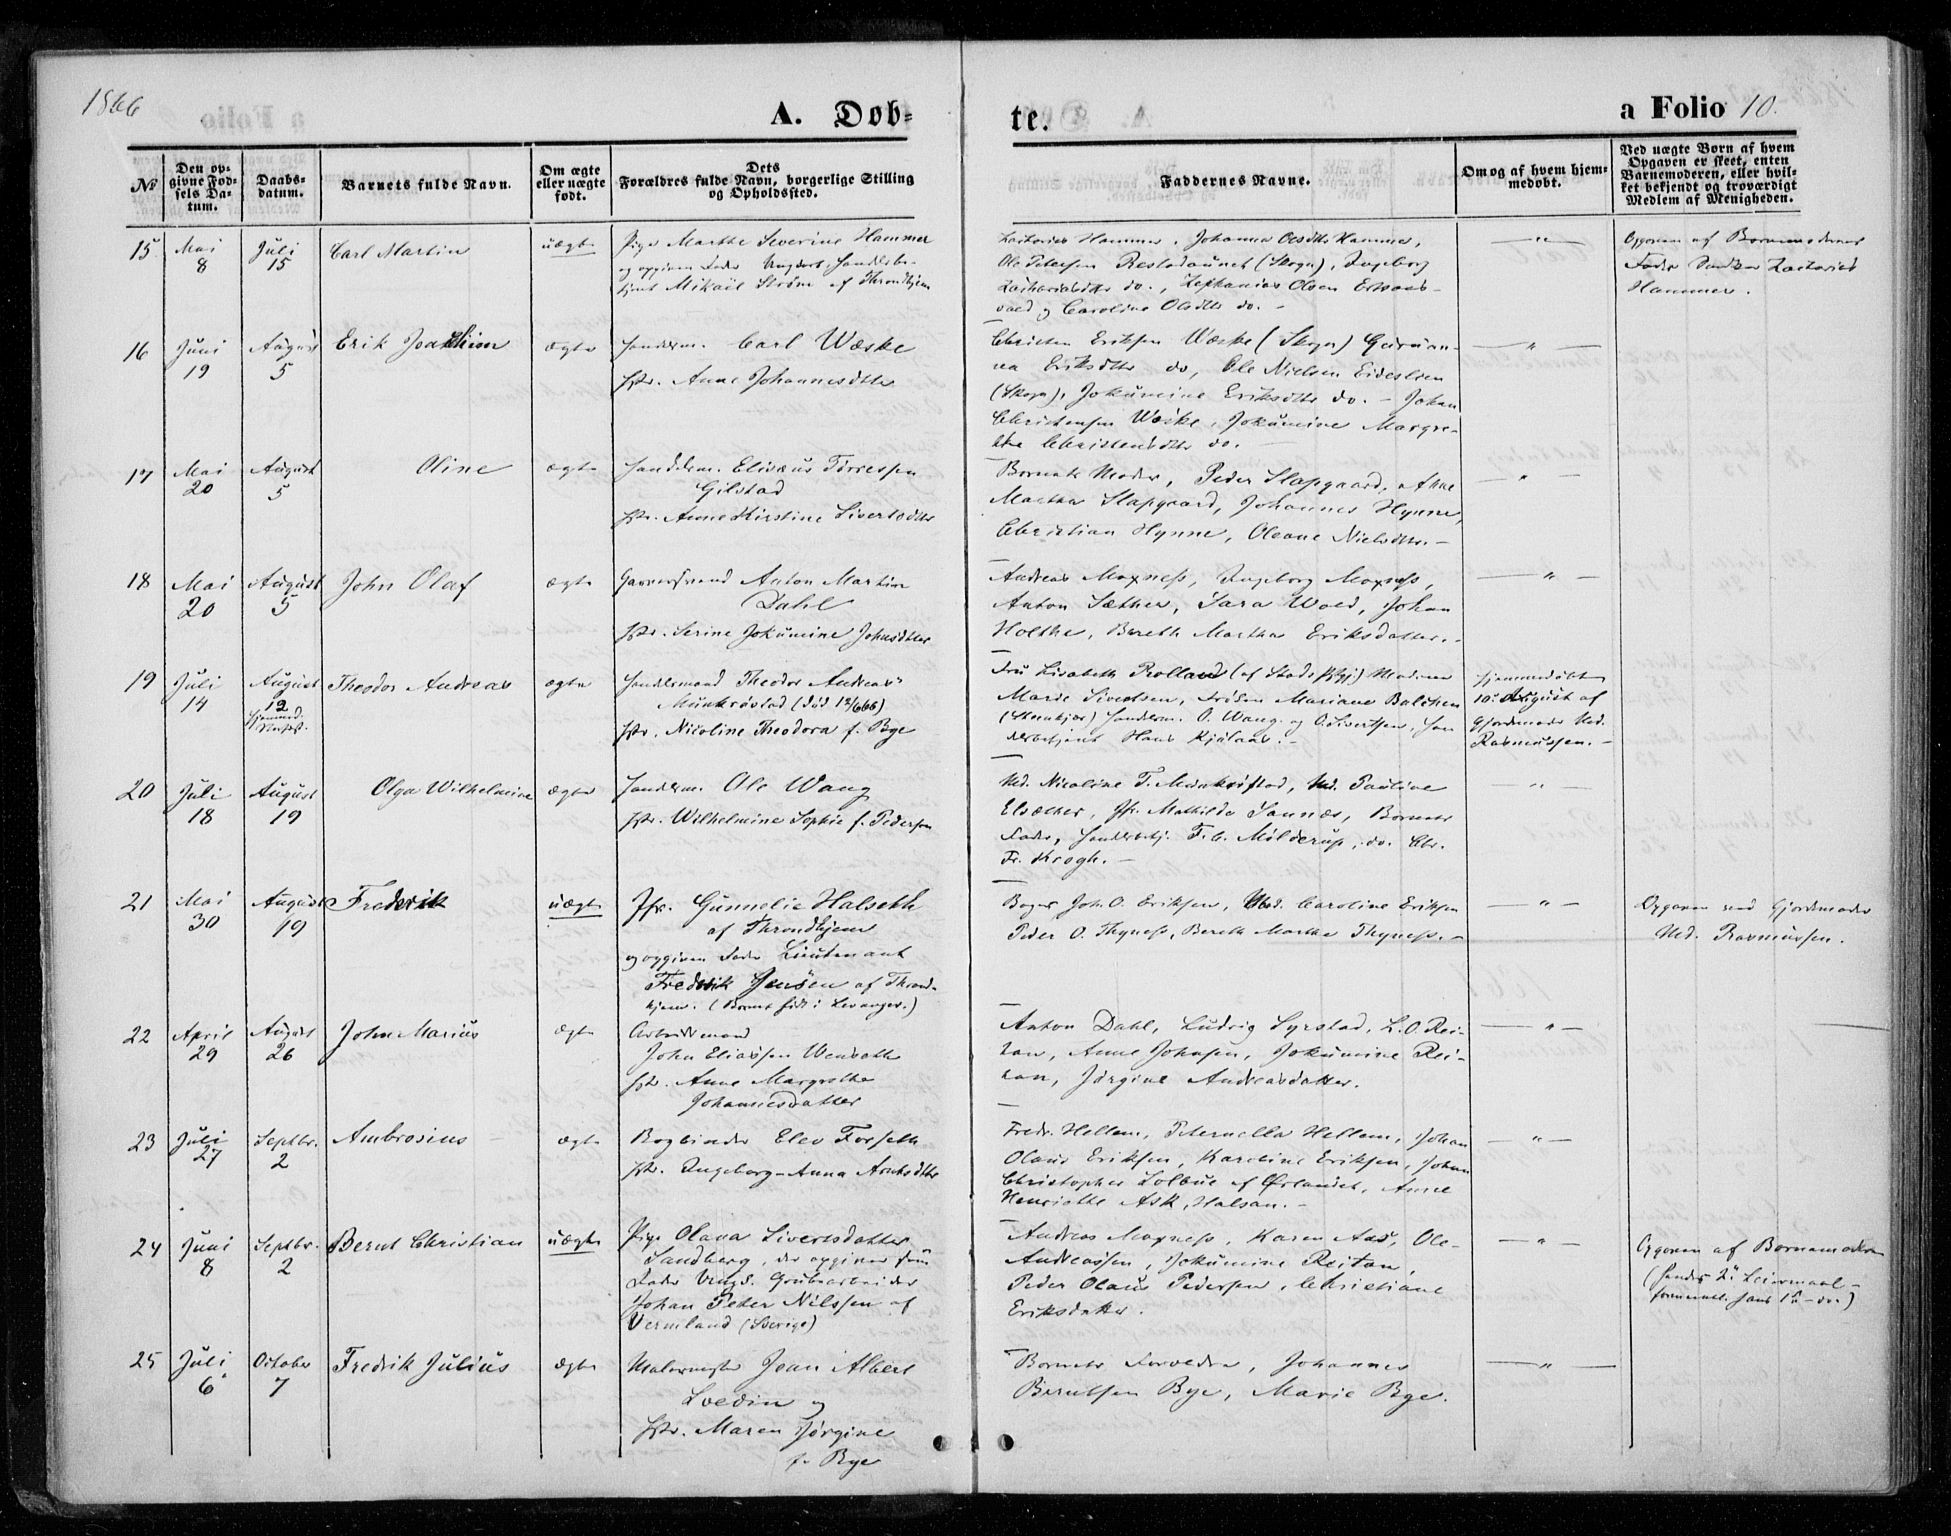 1866
A. Døb-
te.
a Folio 10.
№
Den op-
givne Fød-
sels Da-
tum.
Daabs-
datum.
Barnets fulde Navn.
Om ægte
eller uægte
født.
Dets
Forældres fulde Navn, borgerlige Stilling
og Opholdssted.
Faddernes Navne.
Om og af hvem hjem-
medøbt.
Ved uægte Børn af hvem
Opgaven er skeet, enten
Barnemoderen, eller hvil-
ket bekjendt og troværdigt
Medlem af Menigheden.
15
Mai
8
Juli
15
Carl Martin
uægte
Pige Marthe Severine Hammer
og opgiven Fader Ungkarl, Handelsbe-
tjent Mikael Strøm af Throndhjem
Zacharias Hammer, Johanna Olsdtr Hammer,
Ole Petersen Restadaunet (Skogn), Ingeborg
Zachariasdtr do., Zephanias Olsen
og Caroline Olsdtr do. -
— " —
Opgaven af Barnemoderens
Fader Zacharias
Hammer.
16
Juni
19
August
5
Erik Joachim
ægte
Handelsm. Carl Wæske
Hstr. Anne Johannesdtr
Christen Eriksen Wæske (Skogn)
Eriksdtr do, Ole Nielsen Eideslien
(Skogn), Jokumine Eriksdtr do. - Johan
Christensen Wæske, Jokumine Margre-
the Christensdtr do.
— " —
17
Mai
20
August
5
Oline
ægte
Handelsm. Elisæus Torressen
Gilstad
Hstr. Anne Kirstine Sivertsdtr
Barnets Moder, Peder Slapgaard,
Martha Slapgaard, Johannes Hynne,
Christian Hynne, Oleane Nielsdtr. -
— " —
18
Mai
20
August
5
John Olaf
ægte
Garversvend Anton Martin
Dahl
Hstr. Serine Jokumine Johnsdtr
Andreas Moxness, Ingeborg Moxness,
Anton Sæther, Sara Wold, Johan
Holthe, Bereth Martha Eriksdatter. -
— " —
19
Juli
14
August
12
Theodor Andreas
ægte
Handelsmand Theodor Andreas
Munkrøstad (død 12/6 66)
Hstr. Nicoline Theodora f. Bye
Fru Lisabeth Rolland (af Stods Pgj.) Madame
Marie Sivertsen, Frøken Mariane Balchen
(Steenkjær) Handelsm. O. Wang og O. Sivertsen, Han-
delsbetjent Hans Kjølaas. -
Hjemmedøbt
10. August af
Gjordemoder Md.
Rasmussen. -
20
Juli
18
August
19
Olga Wilhelmine
ægte
Handelsm. Ole Wang
Hstr. Wilhelmine Sophie f. Pedersen
Md. Nicoline T. Munkrøstad, Md. Pauline
Elvæcher, Jfr. Mathilde Sannes, Barnets
Fader, Handelsbetj. F. C. Mølderup, do. Chr.
Fr. Krogh. -
— " —
21
Mai
30
August
19
Fredrik
uægte
Jfr. Gunnelie Halseth
af Throndhjem
og opgiven Fader Lieutenant
Fredrik Jensen af Thrond-
hjem. (Barnet født i Levanger.)
Bager Joh. O. Eriksen, Md. Caroline Eriksen
Peder O. Thyness, Bereth Marthe Thyness. -
— " —
Opgaven ved Gjordemoder
Md. Rasmussen.
22
April
29
August
26
John Marius
ægte
Arbeidsmand
John Eliassen Wensæth
Hstr. Anne Margrethe
Johannesdatter
Anton Dahl, Ludvig Syrstad, L. O. Rei-
tan, Anne Johnsen, Jokumine Rei-
tan, Jørgine Andreasdatter.
— " —
23
Juli
27
Septbr.
2
Ambrosius
ægte
Bogbinder Elev Forseth
Hstr. Ingeborg-Anna Arntsdtr
Fredr. Hellem, Peternella Hellem, Johan
Olaus Eriksen, Karoline Eriksen, Johan
Christopher Solbue af Ørlandet, Anne
Henriette Ask, Halsan. -
— " —
24
Juni
8
Septbr.
2
Bernt Christian
uægte
Pige Olava Sivertsdatter
Sandberg, der opgiver som
Fader Ungk. Grubearbeider
Johan Peter Nilssen af
Vermland (Sverige)
Andreas Moxness, Karen Aas, Ole
Andreassen, Jokumine Reitan,
Peder Olaus Pedersen, Christiane
Eriksdatter.
— " —
Opgaven af Barnemoderen
(Hendes 2det Leiermaal -
hans 1ste - do.)
25
Juli
6
October
7
Fredrik Julius
ægte
Malermester Joan Albert
Loedin og
Hstr. Maren Jørgine
f. Bye
Barnets Forældre, Johannes
Berntsen Bye, Marie Bye.
— " —